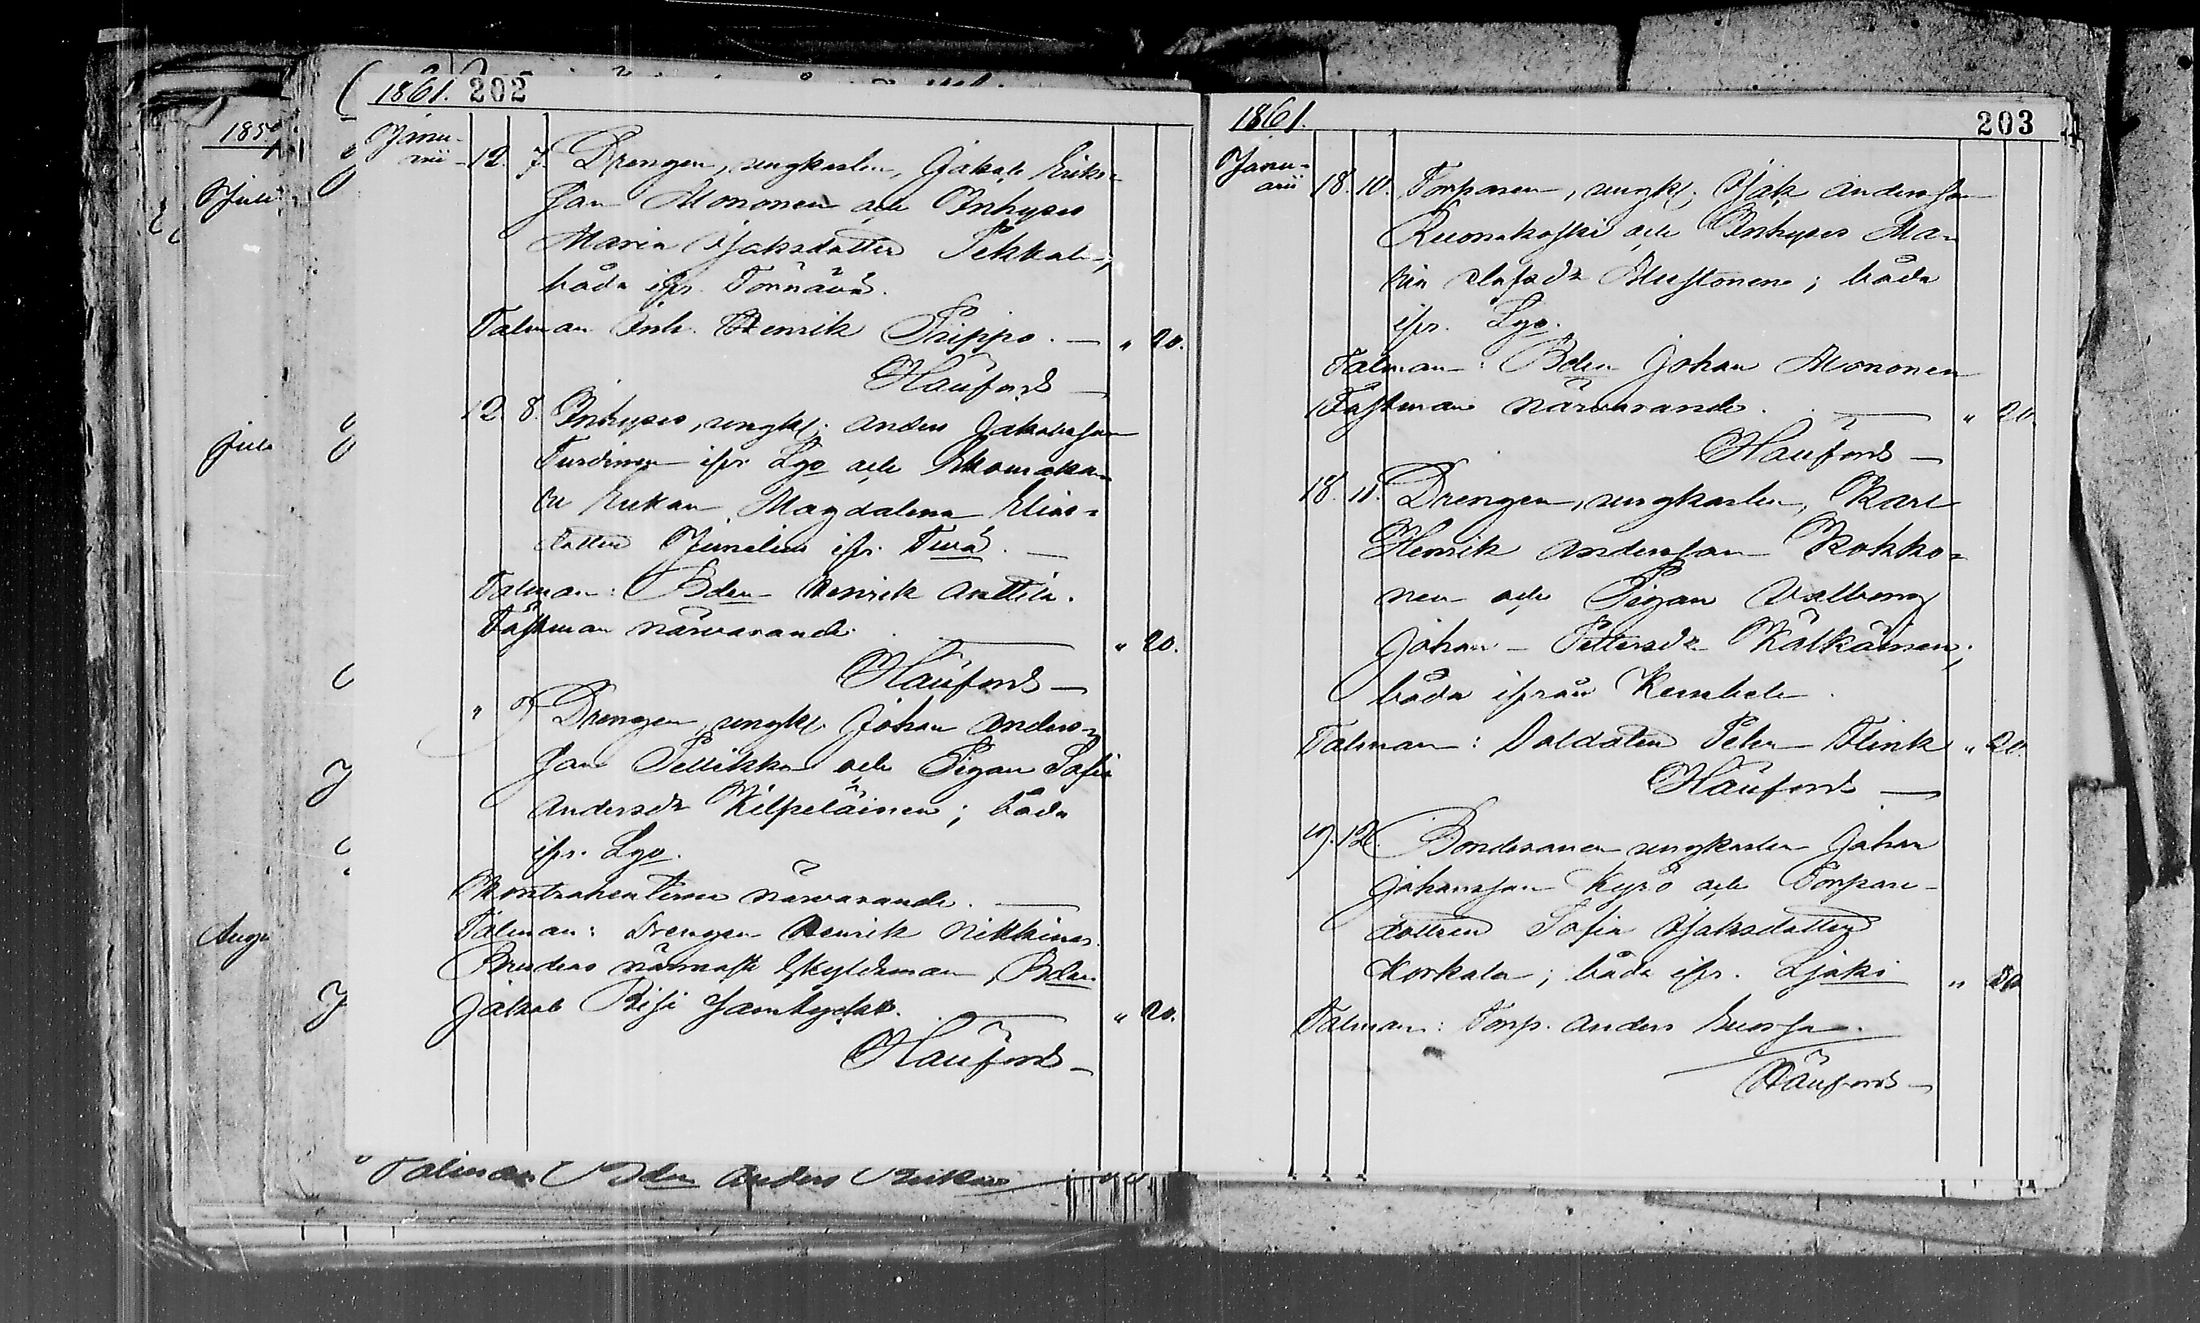 1861. 202
Janu-
arii 12. 7. Drengen, ungkarlen, Jakob Eriks-
son Mononen och Inhyses
Maria Jaksdotter Pekkala,
båda ifr. Törnävä.
Talman Inh. Henrik Prippo. — " 20.
Häufors —
12 8. Inhyses, ungk. Anders Jakobsson
Turdinen ifr. Lgo och Skomaka-
re Enkan, Magdalena Elias-
dotter Junelius ifr. Tuså. —
Talman: Bden Henrik Anttila.
Fästman närvarande. — " 20.
Häufors —
" 9 Drengen, ungk. Johan Anders-
son Pellikka och Pigan Sofia
Andersdr Kilpeläinen; båda
ifr. Lgo.
Kontrahenterna närvarande. —
Talman: Drengen Henrik Nikkinen.
Brudens närmaste Skyldman, Bden
Jakob samtycker. — " 20.
Häufors —
Talman Bden Anders
185
Juli
Juli
Augu
1861. 203
Janu-
arii 18. 10. Torparen, ungk. Isak Andersson
Ruonakoski och Inhyses Ma-
ria Olofsdr Mustonen; båda
ifr. Lgo.
Talman: Bden Johan Mononen
Fästman närvarande. — " 20.
Häufors —
18. 11. Drengen, ungkarlen, Karl
Henrik Andersson Kokko-
nen och Pigan Valborg
Johan-Pettersdr Kälkäinen;
båda ifrån Kembele.
Talman: Soldaten Petr Flink " 20.
Häufors —
19. 12. Bondesonen ungkarlen Johan
Johansson Kyrö och Torpare-
dottren Sofia Isaksdotter
Korkala; båda ifr. Ljoki " 80
Talman: Torp. Anders
Häufors —